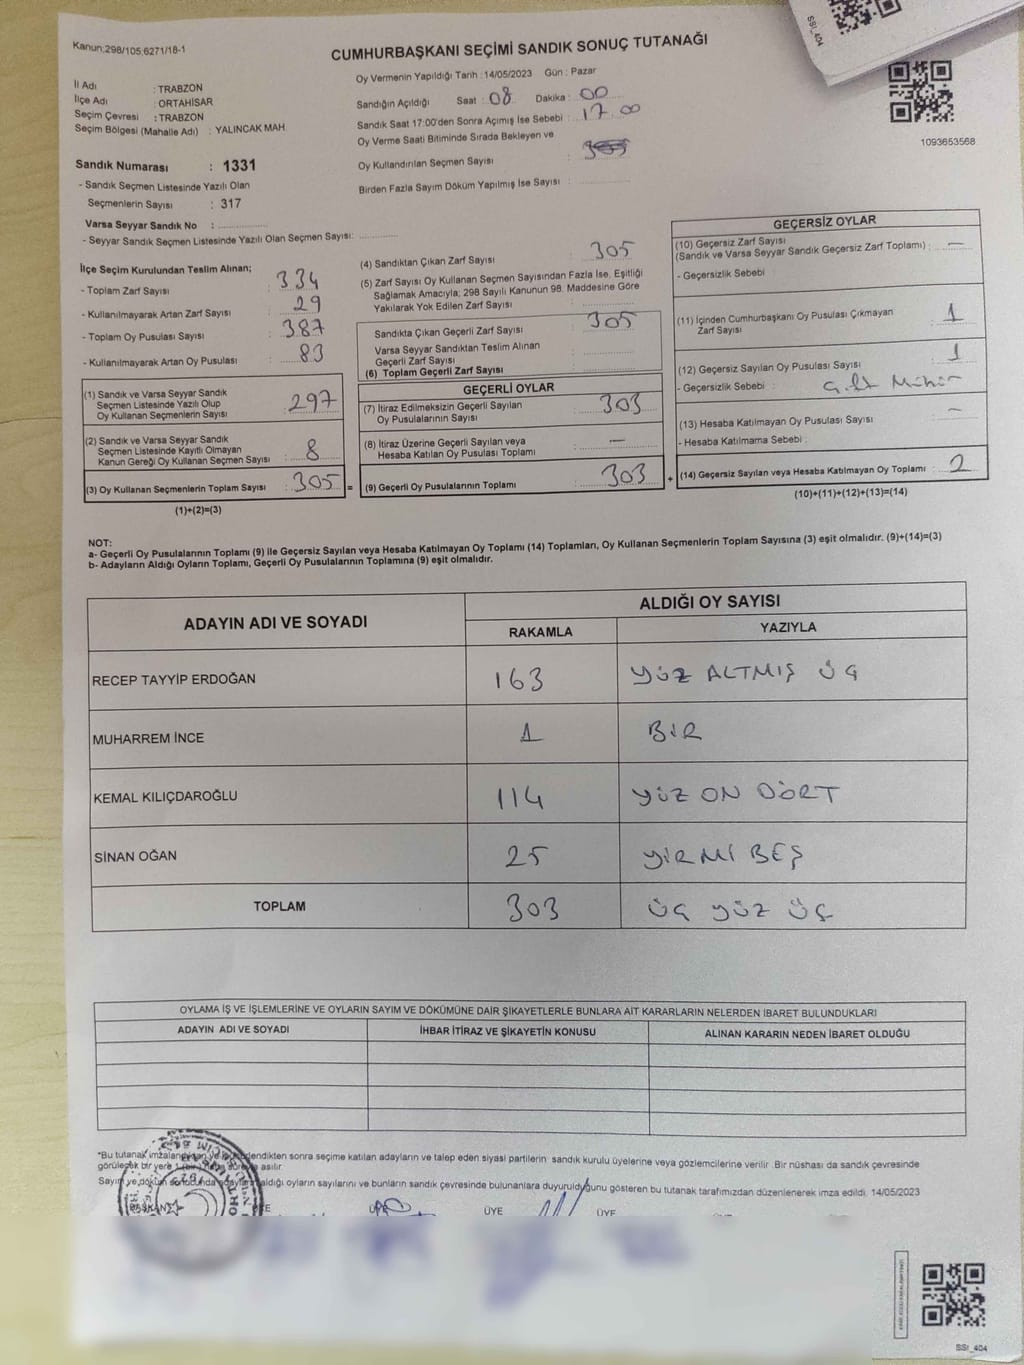 Kanun:298/105;6271/18-1
CUMHURBAŞKANI SEÇİMİ SANDIK SONUÇ TUTANAĞI
SSİ_404
1093653568
İl Adı : TRABZON
İlçe Adı : ORTAHİSAR
Seçim Çevresi : TRABZON
Seçim Bölgesi (Mahalle Adı) : YALINCAK MAH.
Sandık Numarası : 1331
- Sandık Seçmen Listesinde Yazılı Olan
Seçmenlerin Sayısı : 317
Varsa Seyyar Sandık No :
- Seyyar Sandık Seçmen Listesinde Yazılı Olan Seçmen Sayısı:
Oy Vermenin Yapıldığı Tarih :14/05/2023 Gün : Pazar
Sandığın Açıldığı Saat : 08 Dakika : 00
Sandık Saat 17:00'den Sonra Açımış İse Sebebi : 17.00
Oy Verme Saati Bitiminde Sırada Bekleyen ve
Oy Kullandırılan Seçmen Sayısı :
Birden Fazla Sayım Döküm Yapılmış İse Sayısı :
İlçe Seçim Kurulundan Teslim Alınan;
- Toplam Zarf Sayısı : 334
- Kullanılmayarak Artan Zarf Sayısı : 29
- Toplam Oy Pusulası Sayısı : 387
- Kullanılmayarak Artan Oy Pusulası : 83
(1) Sandık ve Varsa Seyyar Sandık
Seçmen Listesinde Yazılı Olup
Oy Kullanan Seçmenlerin Sayısı : 297
(2) Sandık ve Varsa Seyyar Sandık
Seçmen Listesinde Kayıtlı Olmayan
Kanun Gereği Oy Kullanan Seçmen Sayısı : 8
(3) Oy Kullanan Seçmenlerin Toplam Sayısı : 305 =
(1)+(2)=(3)
(4) Sandıktan Çıkan Zarf Sayısı : 305
(5) Zarf Sayısı Oy Kullanan Seçmen Sayısından Fazla İse, Eşitliği
Sağlamak Amacıyla; 298 Sayılı Kanunun 98. Maddesine Göre
Yakılarak Yok Edilen Zarf Sayısı :
Sandıkta Çıkan Geçerli Zarf Sayısı : 305
Varsa Seyyar Sandıktan Teslim Alınan
Geçerli Zarf Sayısı :
(6) Toplam Geçerli Zarf Sayısı :
GEÇERLİ OYLAR
(7) İtiraz Edilmeksizin Geçerli Sayılan
Oy Pusulalarının Sayısı : 303
(8) İtiraz Üzerine Geçerli Sayılan veya
Hesaba Katılan Oy Pusulası Toplamı : —
(9) Geçerli Oy Pusulalarının Toplamı : 303 +
GEÇERSİZ OYLAR
(10) Geçersiz Zarf Sayısı
(Sandık ve Varsa Seyyar Sandık Geçersiz Zarf Toplamı) : —
- Geçersizlik Sebebi :
(11) İçinden Cumhurbaşkanı Oy Pusulası Çıkmayan
Zarf Sayısı : 1
(12) Geçersiz Sayılan Oy Pusulası Sayısı : 1
- Geçersizlik Sebebi : Çift Mühür
(13) Hesaba Katılmayan Oy Pusulası Sayısı : —
- Hesaba Katılmama Sebebi :
(14) Geçersiz Sayılan veya Hesaba Katılmayan Oy Toplamı : 2
(10)+(11)+(12)+(13)=(14)
NOT:
a- Geçerli Oy Pusulalarının Toplamı (9) ile Geçersiz Sayılan veya Hesaba Katılmayan Oy Toplamı (14) Toplamları, Oy Kullanan Seçmenlerin Toplam Sayısına (3) eşit olmalıdır. (9)+(14)=(3)
b- Adayların Aldığı Oyların Toplamı, Geçerli Oy Pusulalarının Toplamına (9) eşit olmalıdır.
ADAYIN ADI VE SOYADI
ALDIĞI OY SAYISI
RAKAMLA YAZIYLA
RECEP TAYYİP ERDOĞAN 163 YÜZ ALTMIŞ ÜÇ
MUHARREM İNCE 1 BİR
KEMAL KILIÇDAROĞLU 114 YÜZ ON DÖRT
SİNAN OĞAN 25 YİRMİ BEŞ
TOPLAM 303 ÜÇ YÜZ ÜÇ
OYLAMA İŞ VE İŞLEMLERİNE VE OYLARIN SAYIM VE DÖKÜMÜNE DAİR ŞİKAYETLERLE BUNLARA AİT KARARLARIN NELERDEN İBARET BULUNDUKLARI
ADAYIN ADI VE SOYADI İHBAR İTİRAZ VE ŞİKAYETİN KONUSU ALINAN KARARIN NEDEN İBARET OLDUĞU
*Bu tutanak sonra seçime katılan adayların ve talep eden siyasi partilerin sandık kurulu üyelerine veya gözlemcilerine verilir. Bir nüshası da sandık çevresinde
görülecek bir yere asılır.
aldığı oyların sayılarını ve bunların sandık çevresinde bulunanlara duyurulduğunu gösteren bu tutanak tarafımızdan düzenlenerek imza edildi. 14/05/2023
BAŞKAN ÜYE ÜYE ÜYE
SSİ_404